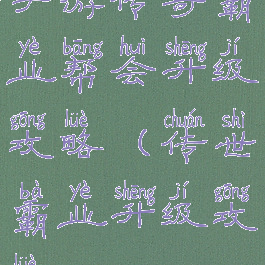 游传奇霸
yè bāng huì shēng jí
业帮会升级
gōng lüè chuán shì
攻略（传世
bà yè shēng jí gōng
霸业升级攻
lüè